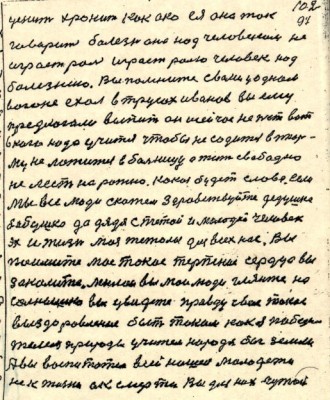 102
91
ценит хронит как око ся она так
говарит болезнь она над человеком не
играет рол играет ролю человек над
болезнею. Вы помните с вами уодном
вагоне ехал в трусах иванов вы ему
предлогали выпить он и сейчас не пьёт вот
у кого надо учится чтобы не садится в тюр-
му не ложится в больницу а жит свабодно
не лесть на рожно. Какая будет слова, если
мы все люди скажем Здравствуйте дедушка
бабушка да дядя с тётей и молодой человек
Эх и жизнь моя тежолая для всех нас. Вы
поймите маё такое терпение сердцо вы
закалите, милаи вы мои люди гляньте на
солнышко вы увидете правду своё такое
выздоровление быть таким как я победи-
телем природы учителем народа бог земли
А вы воспитатель всей нашей молодёжи
не к жизни а к смерти Вы для них чужой